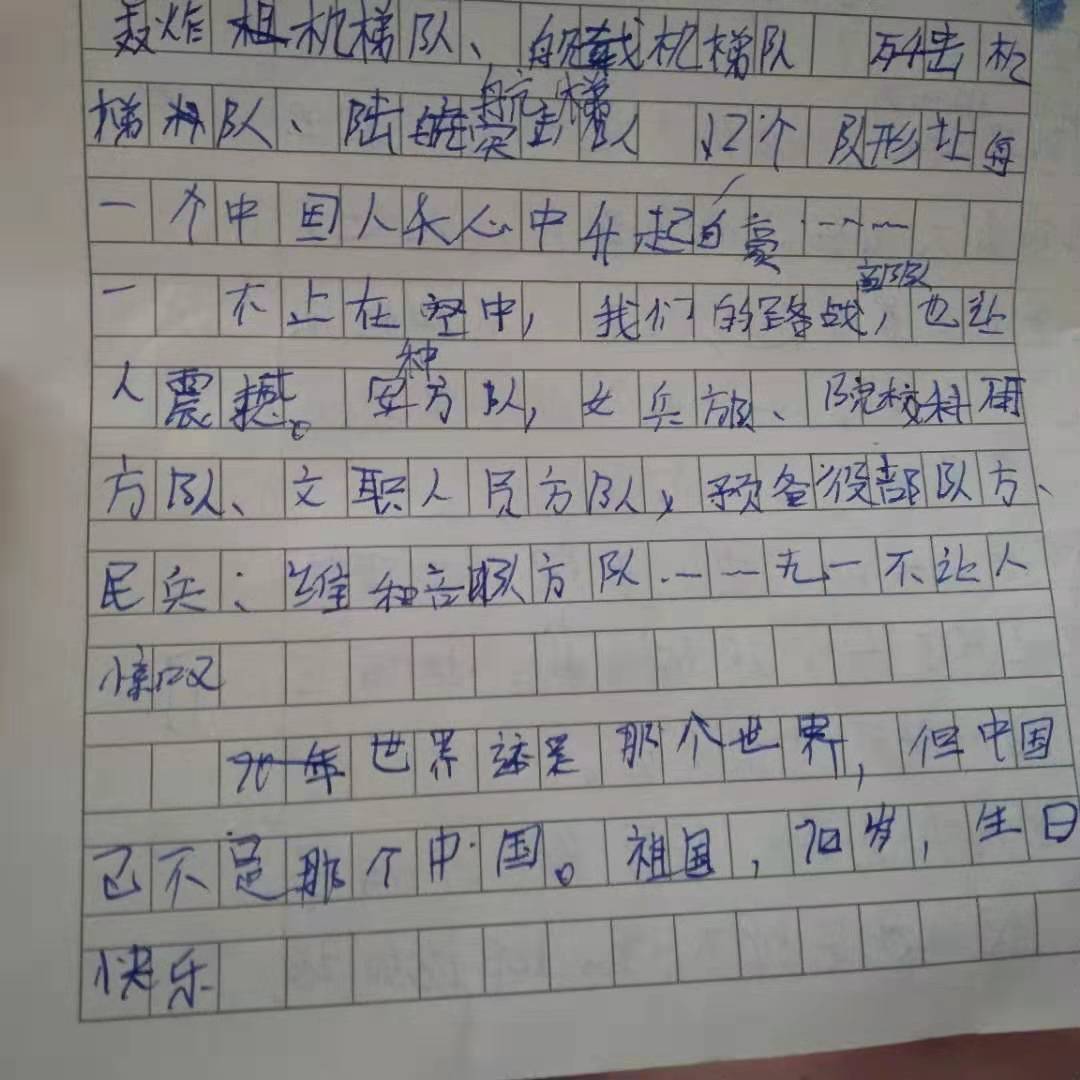 轰炸机梯队、舰载机梯队 歼击机
梯队、陆航突击梯队 12个队形让每
一个中国人长心中升起自豪……
不止在空中，我们的路战部队，也让
人震撼。安种方队，女兵方队、院校科研
方队、文职人员方队、预备役部队方、
民兵：维和部队方队……无一不让人
惊叹
世界还是那个世界，但中国
己不是那个中国。祖国，70岁，生日
快乐